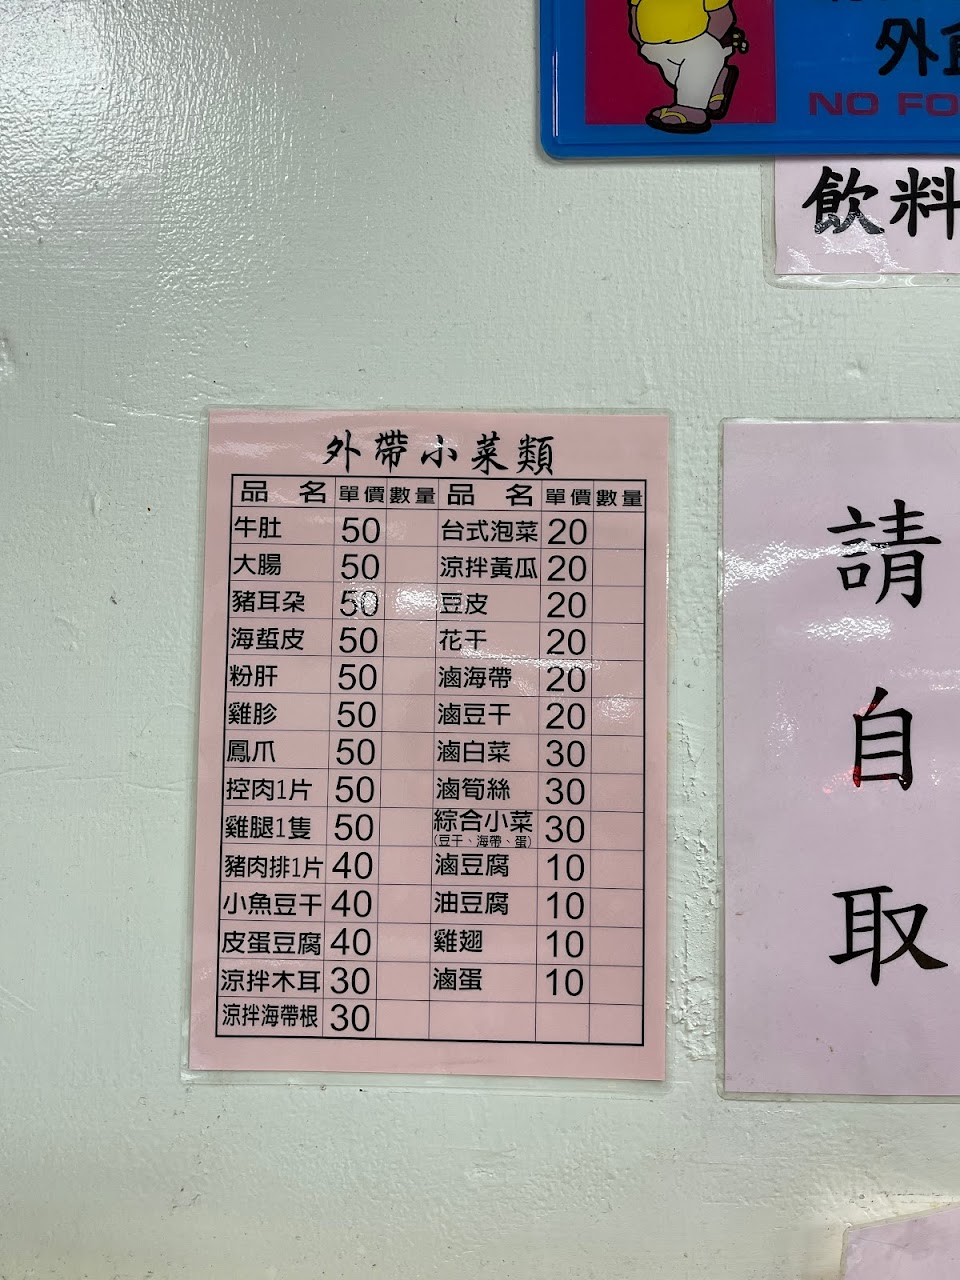 外食
NO FO
飲料
外帶小菜類
品 名 單價 數量 品 名 單價 數量
牛肚 50 台式泡菜 20
大腸 50 涼拌黃瓜 20
豬耳朵 50 豆皮 20
海蜇皮 50 花干 20
粉肝 50 滷海帶 20
雞胗 50 滷豆干 20
鳳爪 50 滷白菜 30
控肉1片 50 滷筍絲 30
雞腿1隻 50 綜合小菜 30
(豆干、海帶、蛋)
豬肉排1片 40 滷豆腐 10
小魚豆干 40 油豆腐 10
皮蛋豆腐 40 雞翅 10
涼拌木耳 30 滷蛋 10
涼拌海帶根 30
請
自
取